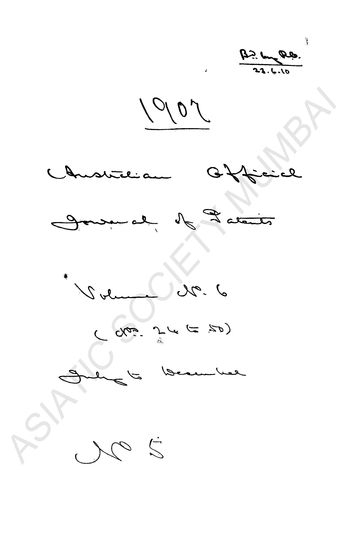 22.6.10
1907
Australian Official
Journal of Patents
Volume No. 6
(Nos. 24 to 50)
July to December
No 5
ASIATIC SOCIETY MUMBAI